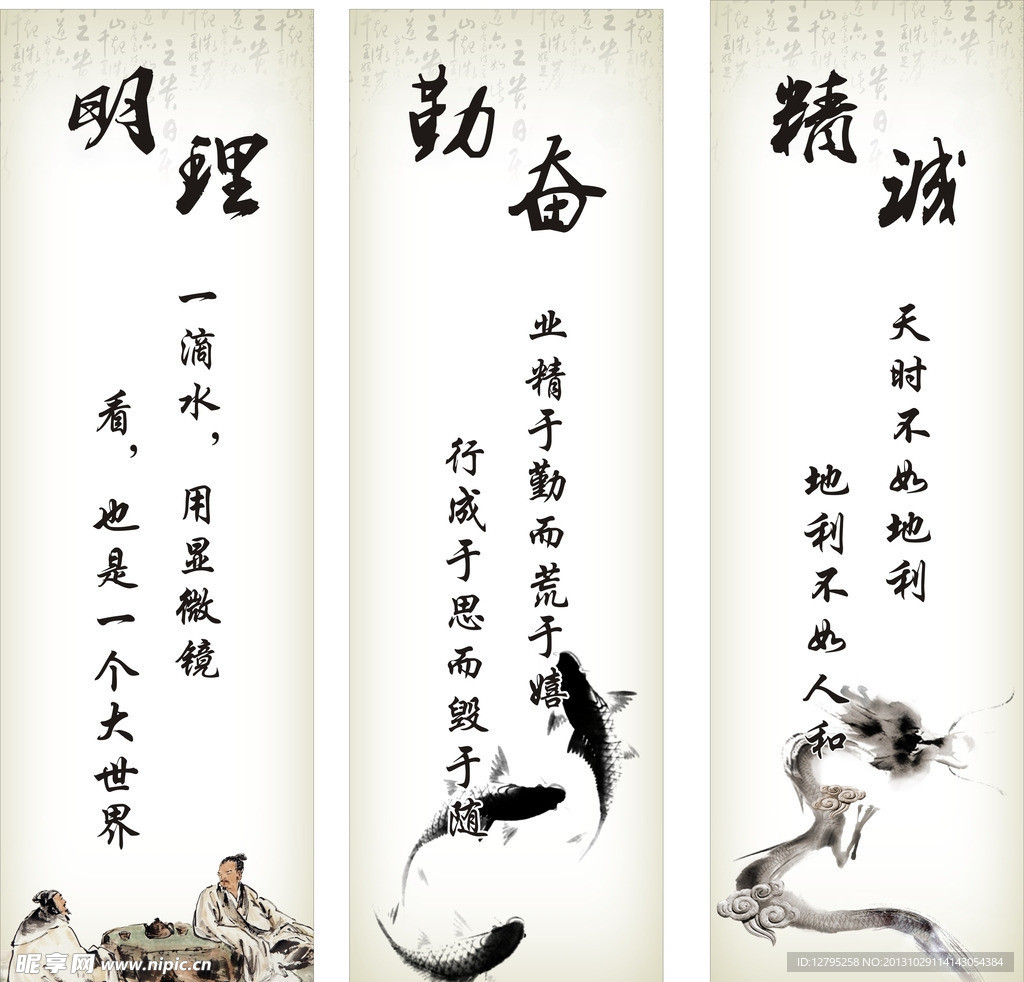 明理
一滴水，用显微镜
看，也是一个大世界
勤奋
业精于勤而荒于嬉
行成于思而毁于随
精诚
天时不如地利
地利不如人和
昵享网 www.nipic.cn
ID:12795258 NO:20131029114143054384